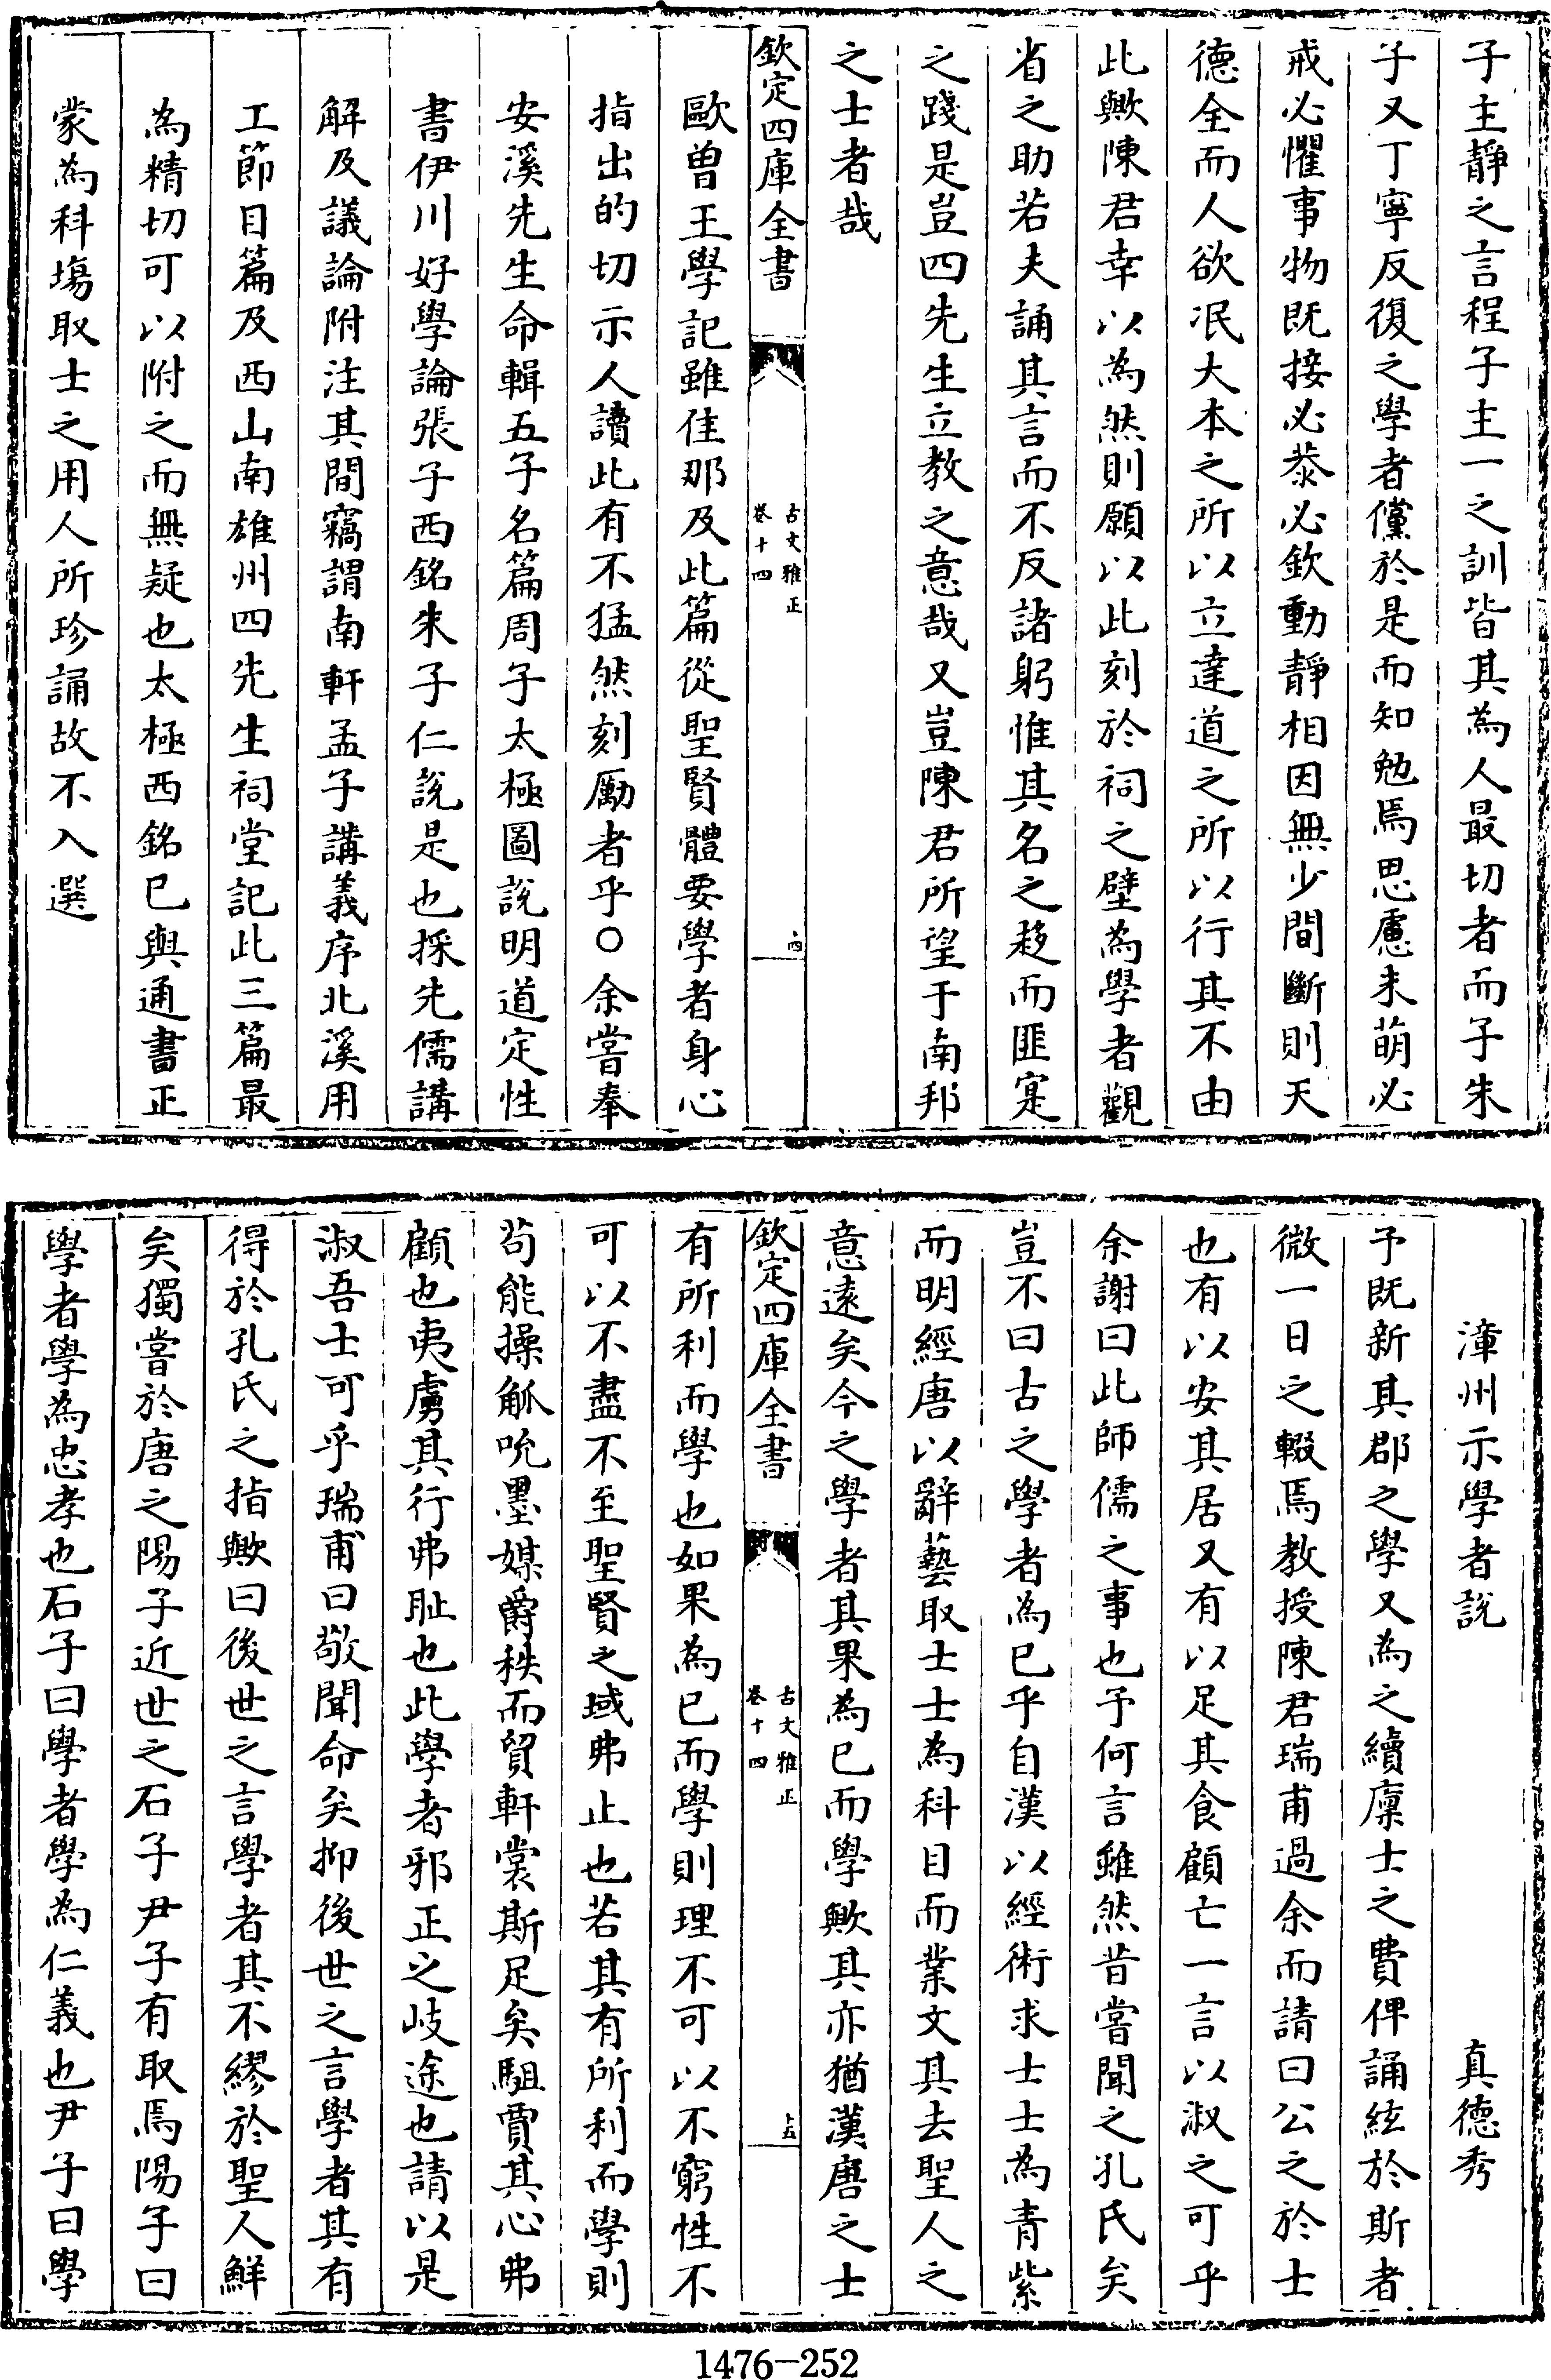 子主靜之言程子主一之訓皆其為人最切者而子朱
子又丁寧反復之學者儻於是而知勉焉思慮未萌必
戒必懼事物既接必恭必欽動靜相因無少間斷則天
德全而人欲冺大本之所以立達道之所以行其不由
此歟陳君幸以為然則願以此刻於祠之壁為學者觀
省之助若夫誦其言而不反諸躬惟其名之趍而匪寔
之踐是豈四先生立教之意哉又豈陳君所望于南邦
之士者哉
欽定四庫全書
古文雅正
卷十四
十四
歐曽王學記雖佳那及此篇從聖賢體要學者身心
指出的切示人讀此有不猛然刻勵者乎○余嘗奉
安溪先生命輯五子名篇周子太極圖說明道定性
書伊川好學論張子西銘朱子仁說是也採先儒講
解及議論附注其間竊謂南軒孟子講義序北溪用
工節目篇及西山南雄州四先生祠堂記此三篇最
為精切可以附之而無疑也太極西銘已與通書正
蒙為科塲取士之用人所珍誦故不入選
漳州示學者說
真德秀
予既新其郡之學又為之續廩士之費俾誦絃於斯者
微一日之輟焉教授陳君瑞甫過余而請曰公之於士
也有以安其居又有以足其食顧亡一言以淑之可乎
余謝曰此師儒之事也予何言雖然昔嘗聞之孔氏矣
豈不曰古之學者為已乎自漢以經術求士士為青紫
而明經唐以辭藝取士士為科目而業文其去聖人之
意遠矣今之學者其果為已而學歟其亦猶漢唐之士
欽定四庫全書
古文雅正
卷十四
十五
有所利而學也如果為已而學則理不可以不窮性不
可以不盡不至聖賢之域弗止也若其有所利而學則
苟能操觚吮墨媒爵秩而貿軒裳斯足矣駔賈其心弗
顧也夷虜其行弗耻也此學者邪正之岐途也請以是
淑吾士可乎瑞甫曰敬聞命矣抑後世之言學者其有
得於孔氏之指歟曰後世之言學者其不繆於聖人鮮
矣獨嘗於唐之陽子近世之石子尹子有取焉陽子曰
學者學為忠孝也石子曰學者學為仁義也尹子曰學
1476-252